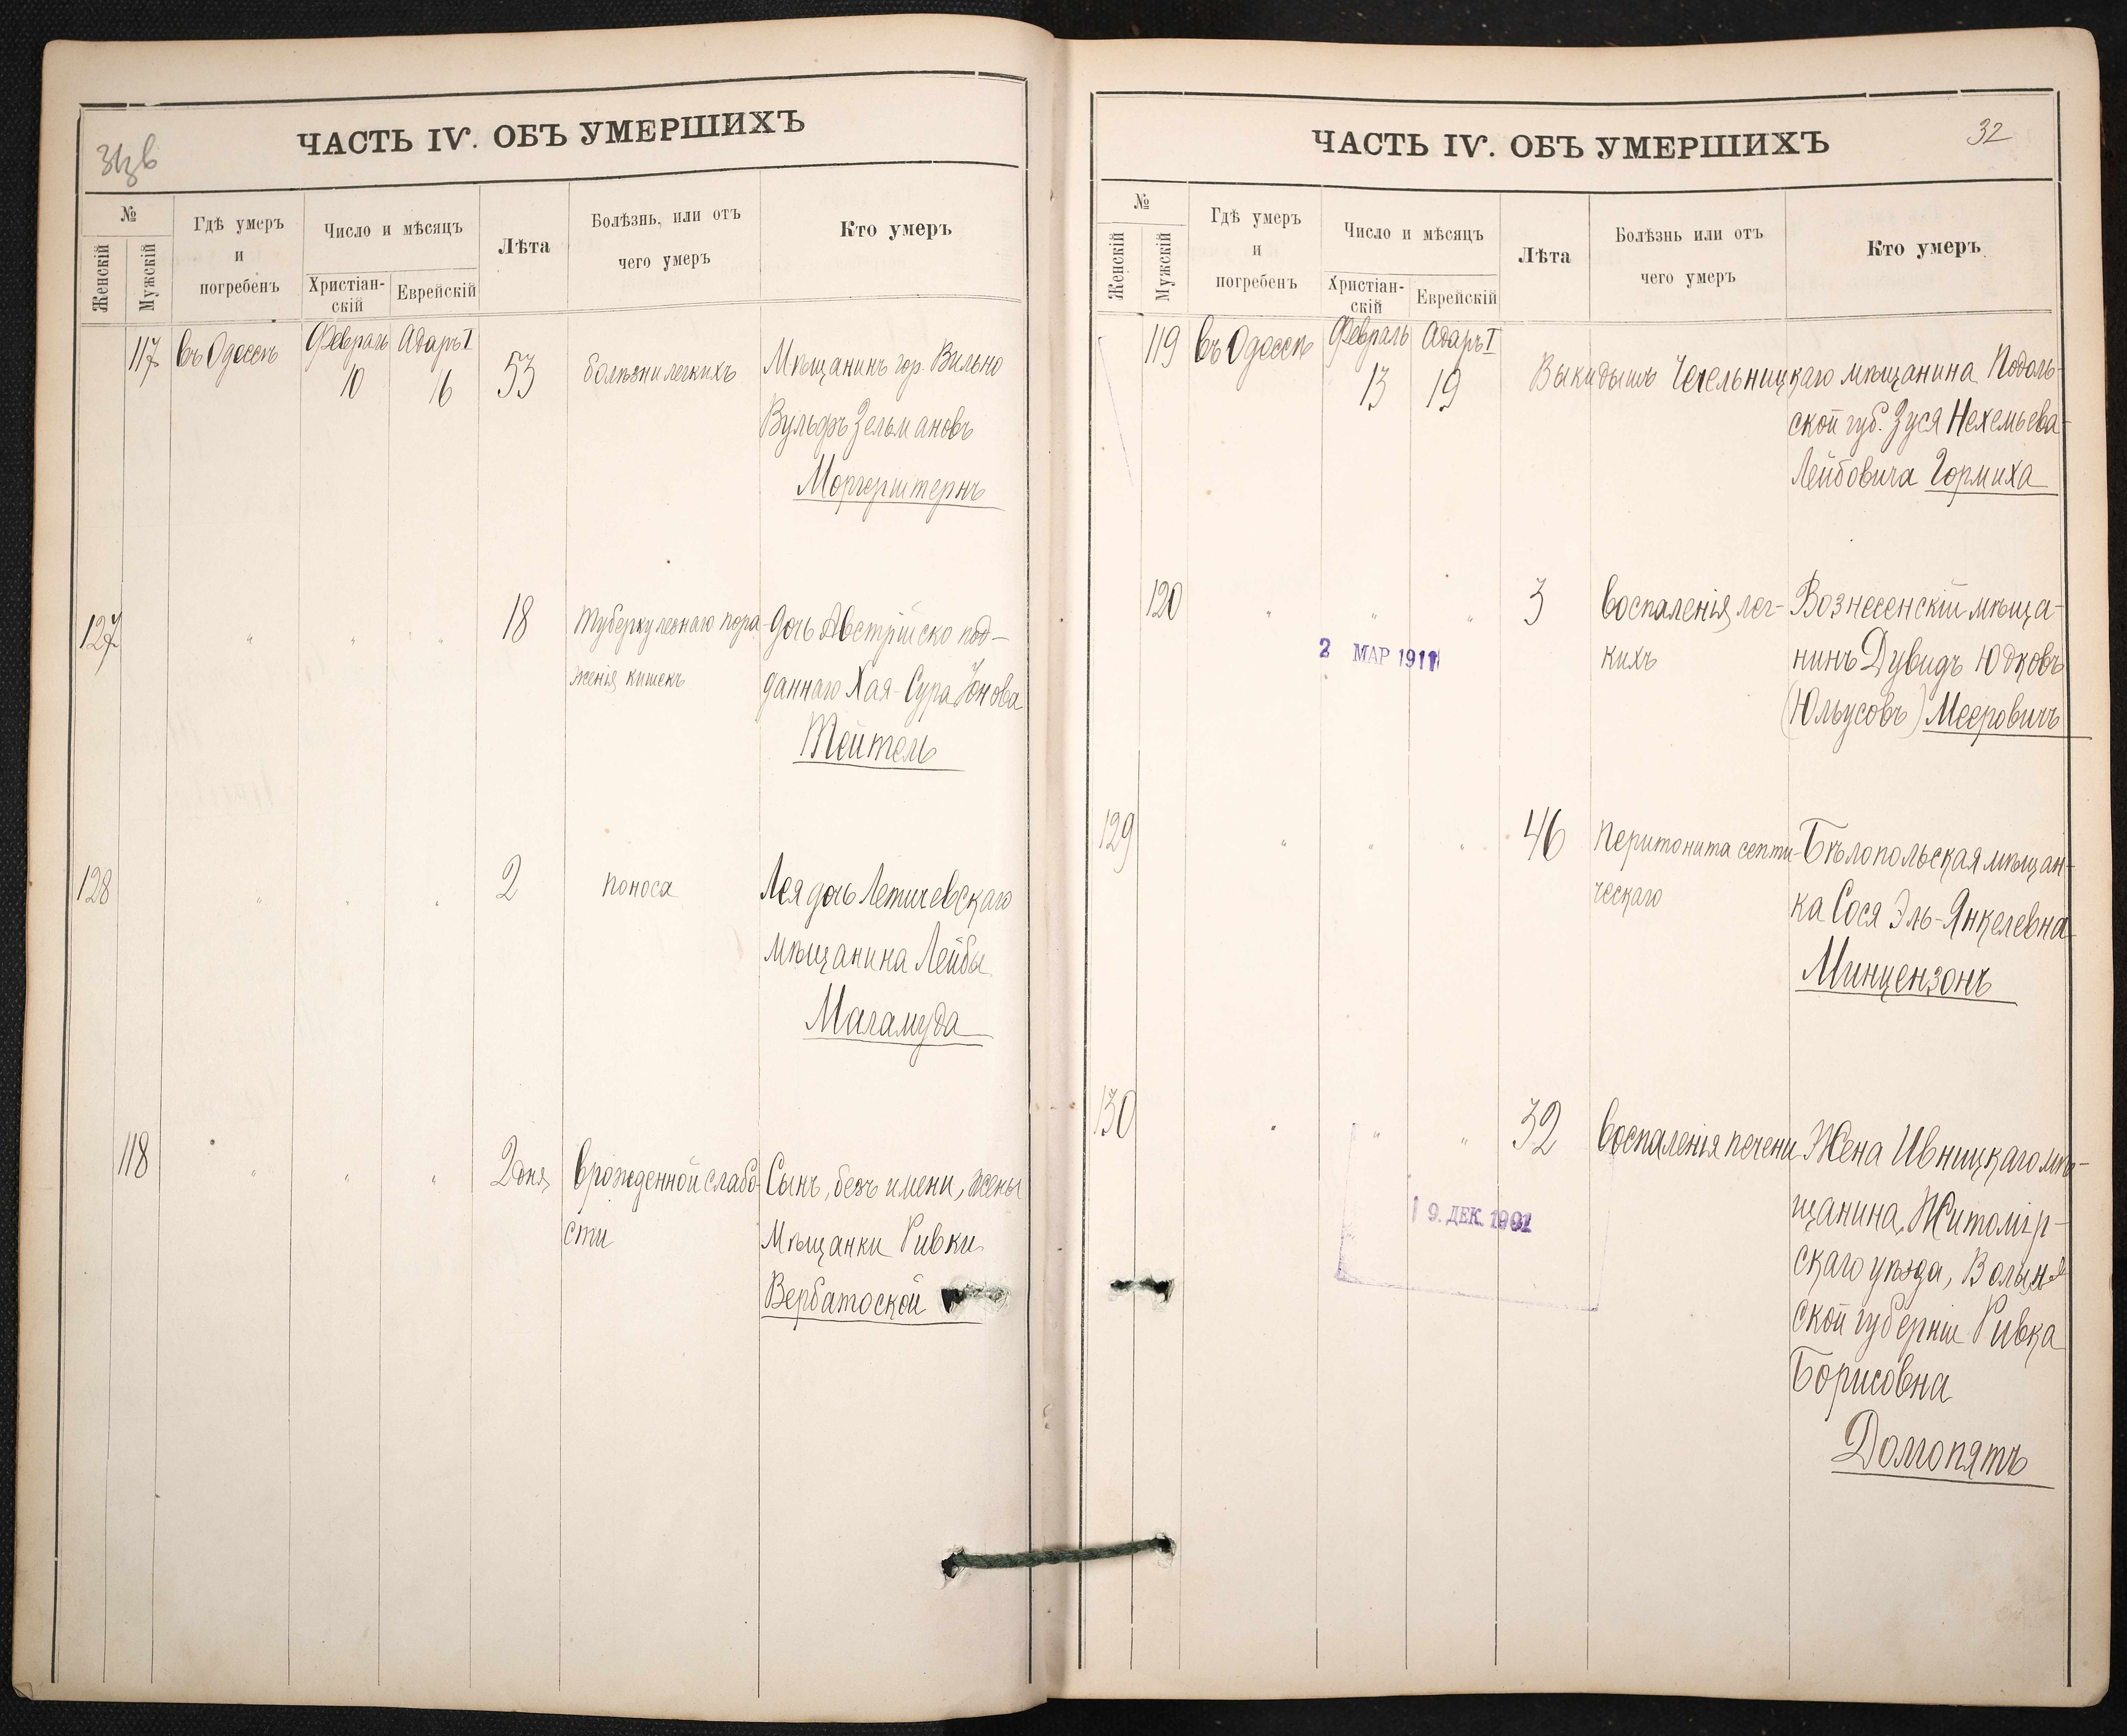 31 зв
ЧАСТЬ IV. ОБЪ УМЕРШИХЪ
№
Женскій
Мужскій
Гдѣ умеръ
и
погребенъ
Число и мѣсяцъ
Христіан-
скій
Еврейскій
Лѣта
Болѣзнь, или отъ
чего умеръ
Кто умеръ
117 въ Одессѣ Февраль 10 Адаръ I 16 53 болѣзни легкихъ Мѣщанинъ гор. Вильно
Вульфъ Зельмановъ
Моргерштернъ
127 " " " 18 Туберкулезнаго пора- Дочь Австрійско под-
женія кишекъ даннаго Хая-Сура Іонова
Тейтель
128 " " " 2 поноса Лея дочь Летичевскаго
мѣщанина Лейбы
Магамуда
118 " " " 2 дня врожденной слабо- Сынъ, безъ имени, жены
сти Мѣщанки Ривки
Вербатоской
ЧАСТЬ IV. ОБЪ УМЕРШИХЪ
32
№
Женскій
Мужскій
Гдѣ умеръ
и
погребенъ
Число и мѣсяцъ
Христіан-
скій
Еврейскій
Лѣта
Болѣзнь или отъ
чего умеръ
Кто умеръ
119 въ Одессѣ Февраль 13 Адаръ I 19 Выкидышъ Чечельницкаго мѣщанина Подоль-
ской губ. Зуся Нехемьева-
Лейбовича Гормиха
120 " " " 3 воспаленія лег- Вознесенскій мѣща-
кихъ нинъ Дувидъ Юдковъ
(Юльусовъ) Мееровичъ
2 МАР 1911
129 " " " 46 Перитонита септи- Бѣлопольская мѣщан-
ческаго ка Сося Эль-Янкелевна
Минцензонъ
130 " " " 32 воспаленія печени Жена Ивницкаго мѣ-
щанина, Житомір-
скаго уѣзда, Волын-
ской губерніи Ривка
Борисовна
Долгопятъ
19. ДЕК. 1991